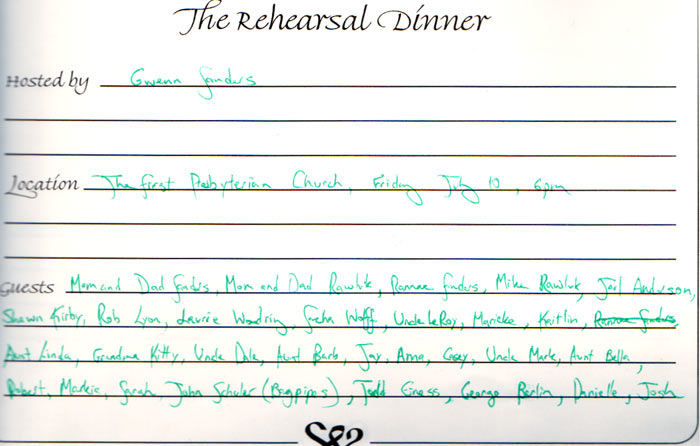 The Rehearsal Dinner
Hosted by Gwenn Sanders
Location The First Presbyterian Church, Friday July 10, 6pm
Guests Mom and Dad Sanders, Mom and Dad Rawluk, Sanders, Mike Rawluk, Joel Anderson,
Shawn Kirby, Rob Lyon, Laurie Woodring, Wolff, Uncle LeRoy, Marieke, Kaitlin,
Aunt Linda, Grandma Kitty, Uncle Dale, Aunt Barb, Jay, Anna, Casey, Uncle Mark, Aunt Bella,
Robert, Markie, Sarah, John Schuler (Bagpipes), Todd George Berlin, Danielle, Josh